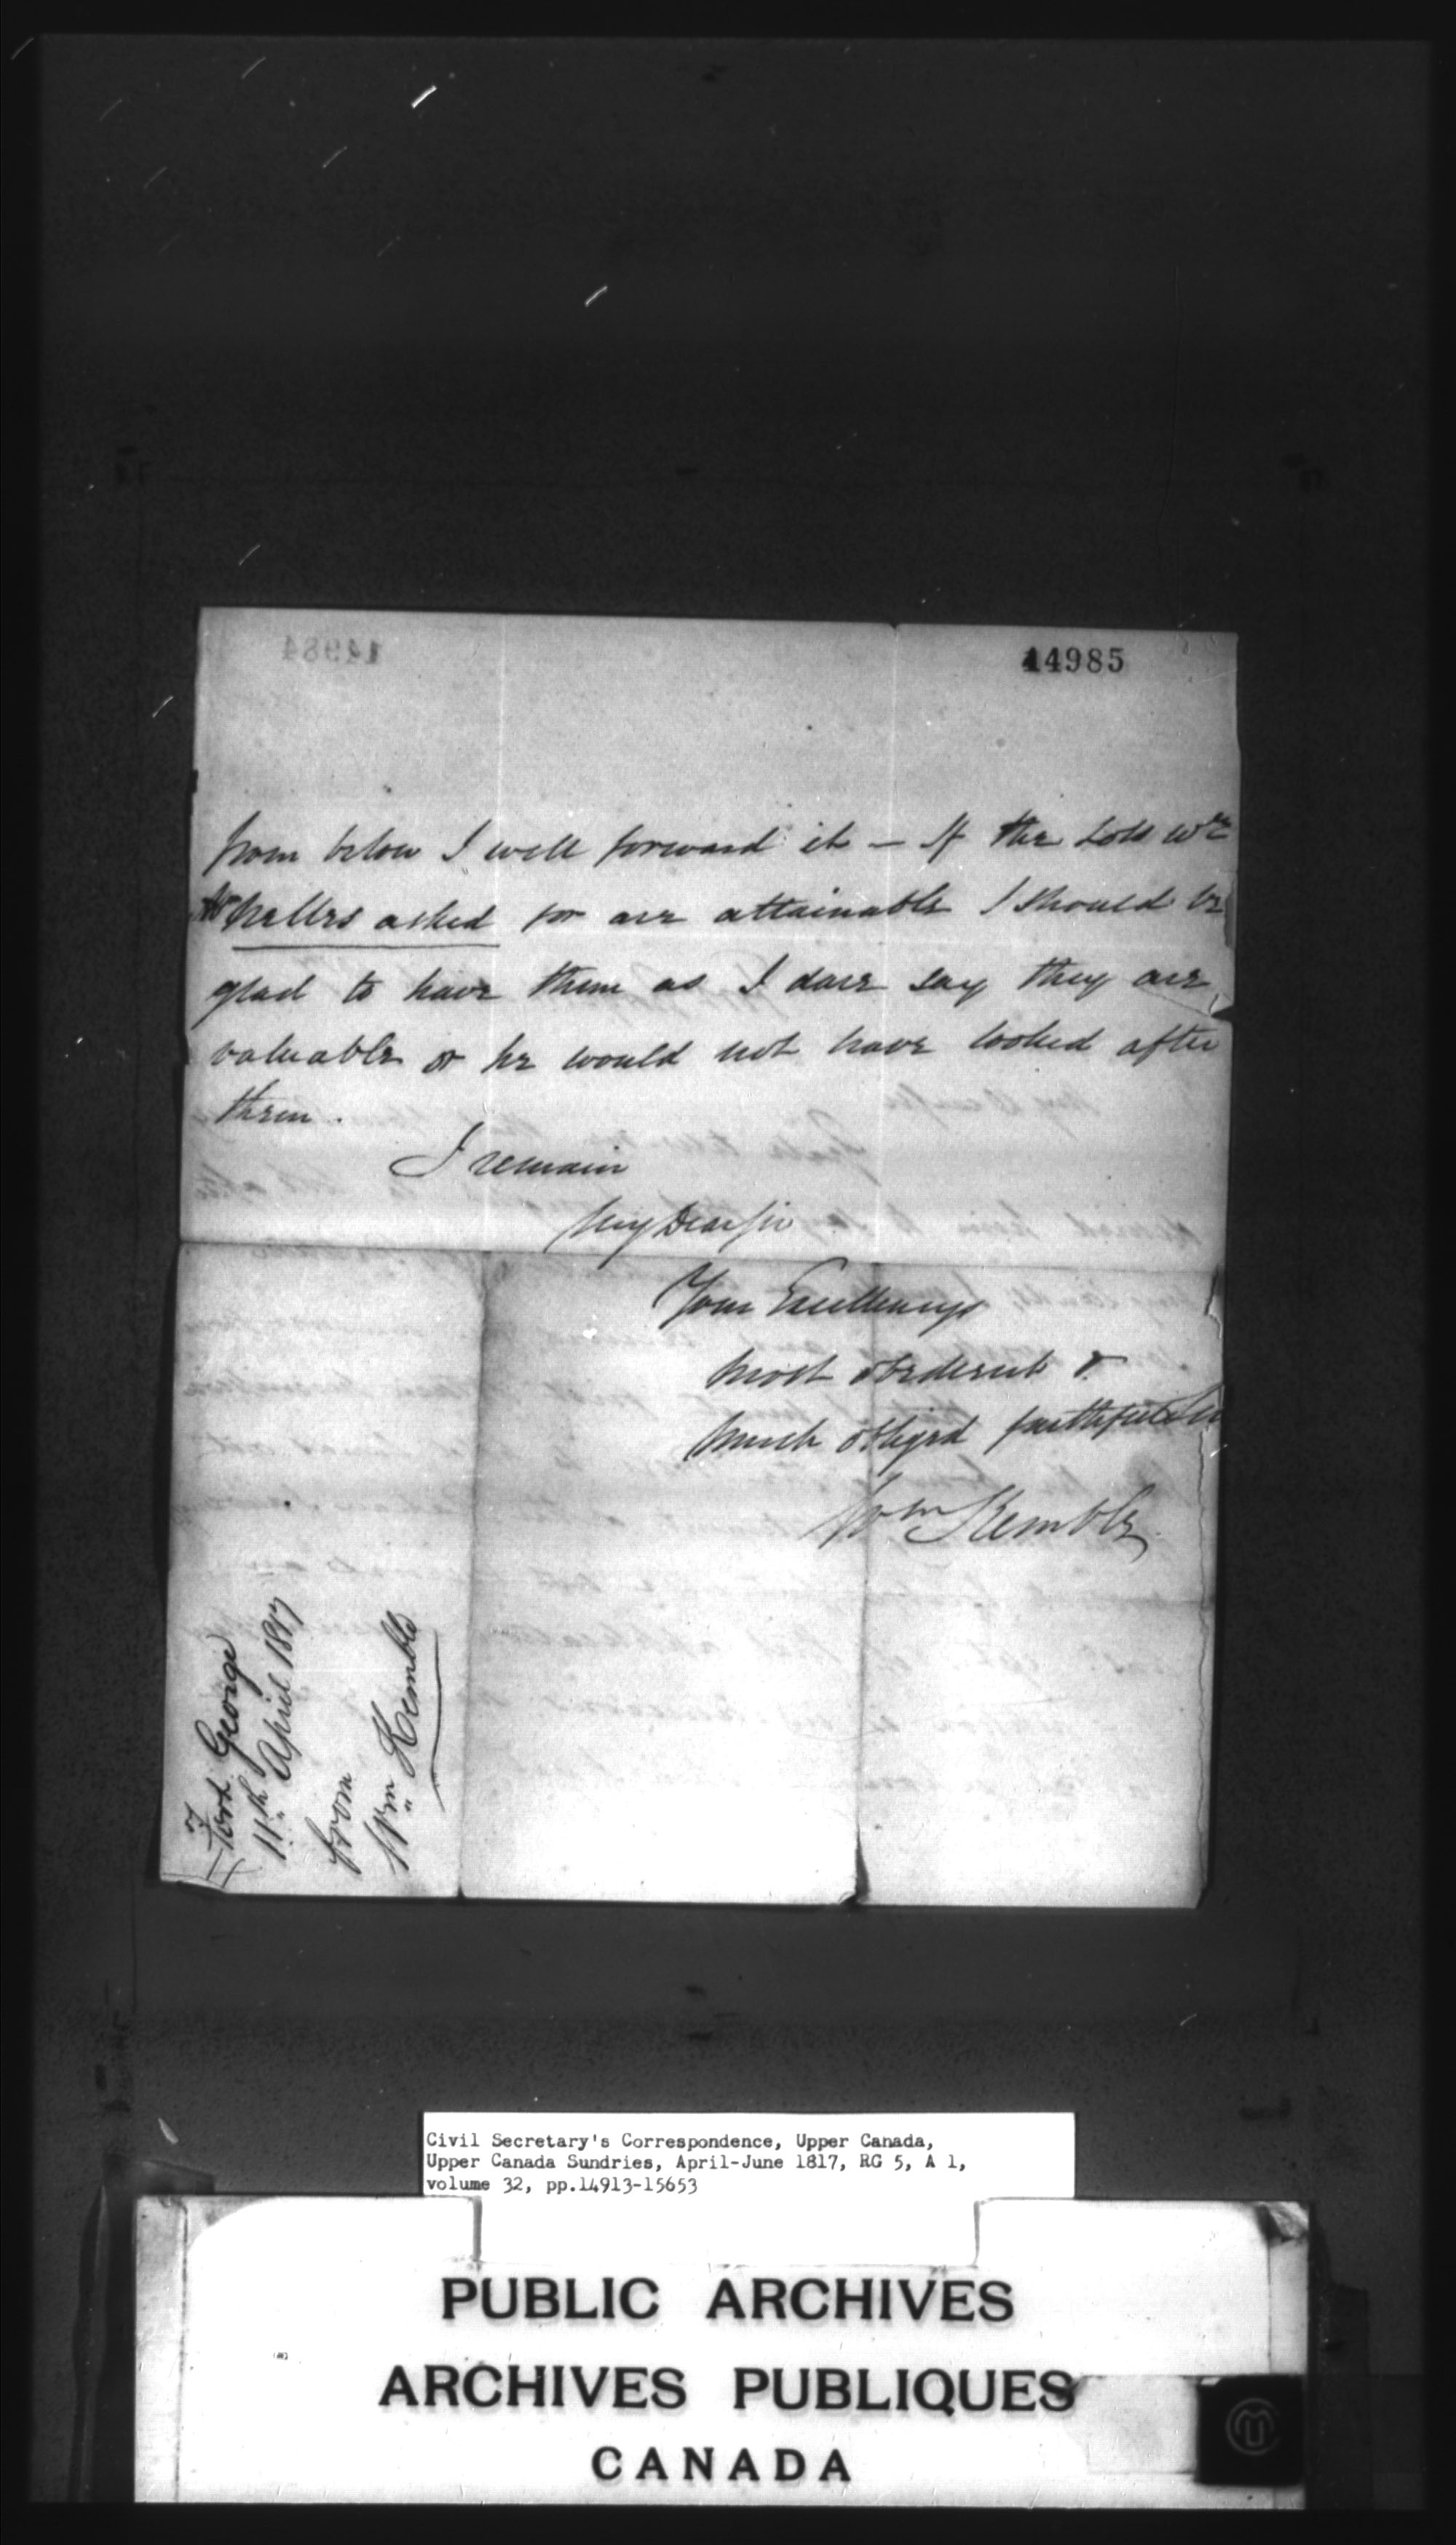 14985
from below I will forward it — If the Lots wch
Mr Kellrs asked for are attainable I should be
glad to have them as I dare say they are
valuable or he would not have looked after
them.
I remain
My Dear Sir
Your Excellencys
most obedient &
much obliged faithful
Wm Kemble
Fort George
11th April 1817
from
Wm Kemble
Civil Secretary's Correspondence, Upper Canada,
Upper Canada Sundries, April-June 1817, RG 5, A 1,
volume 32, pp.14913-15653
PUBLIC ARCHIVES
ARCHIVES PUBLIQUES
CANADA